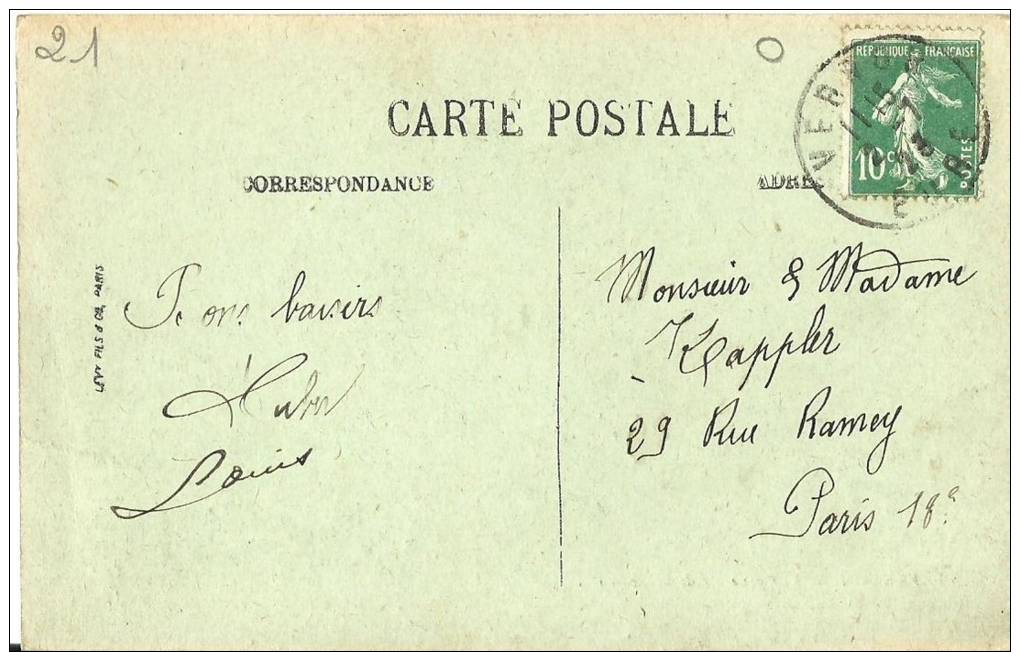 21
CARTE POSTALE
CORRESPONDANCE
ADRES
REPUBLIQUE FRANÇAISE
10 c
POSTES
VERNON
EURE
LEVY FILS & CIE, PARIS
baisers
Louis
Monsieur & Madame
Kappler
29 Rue Ramey
Paris 18e